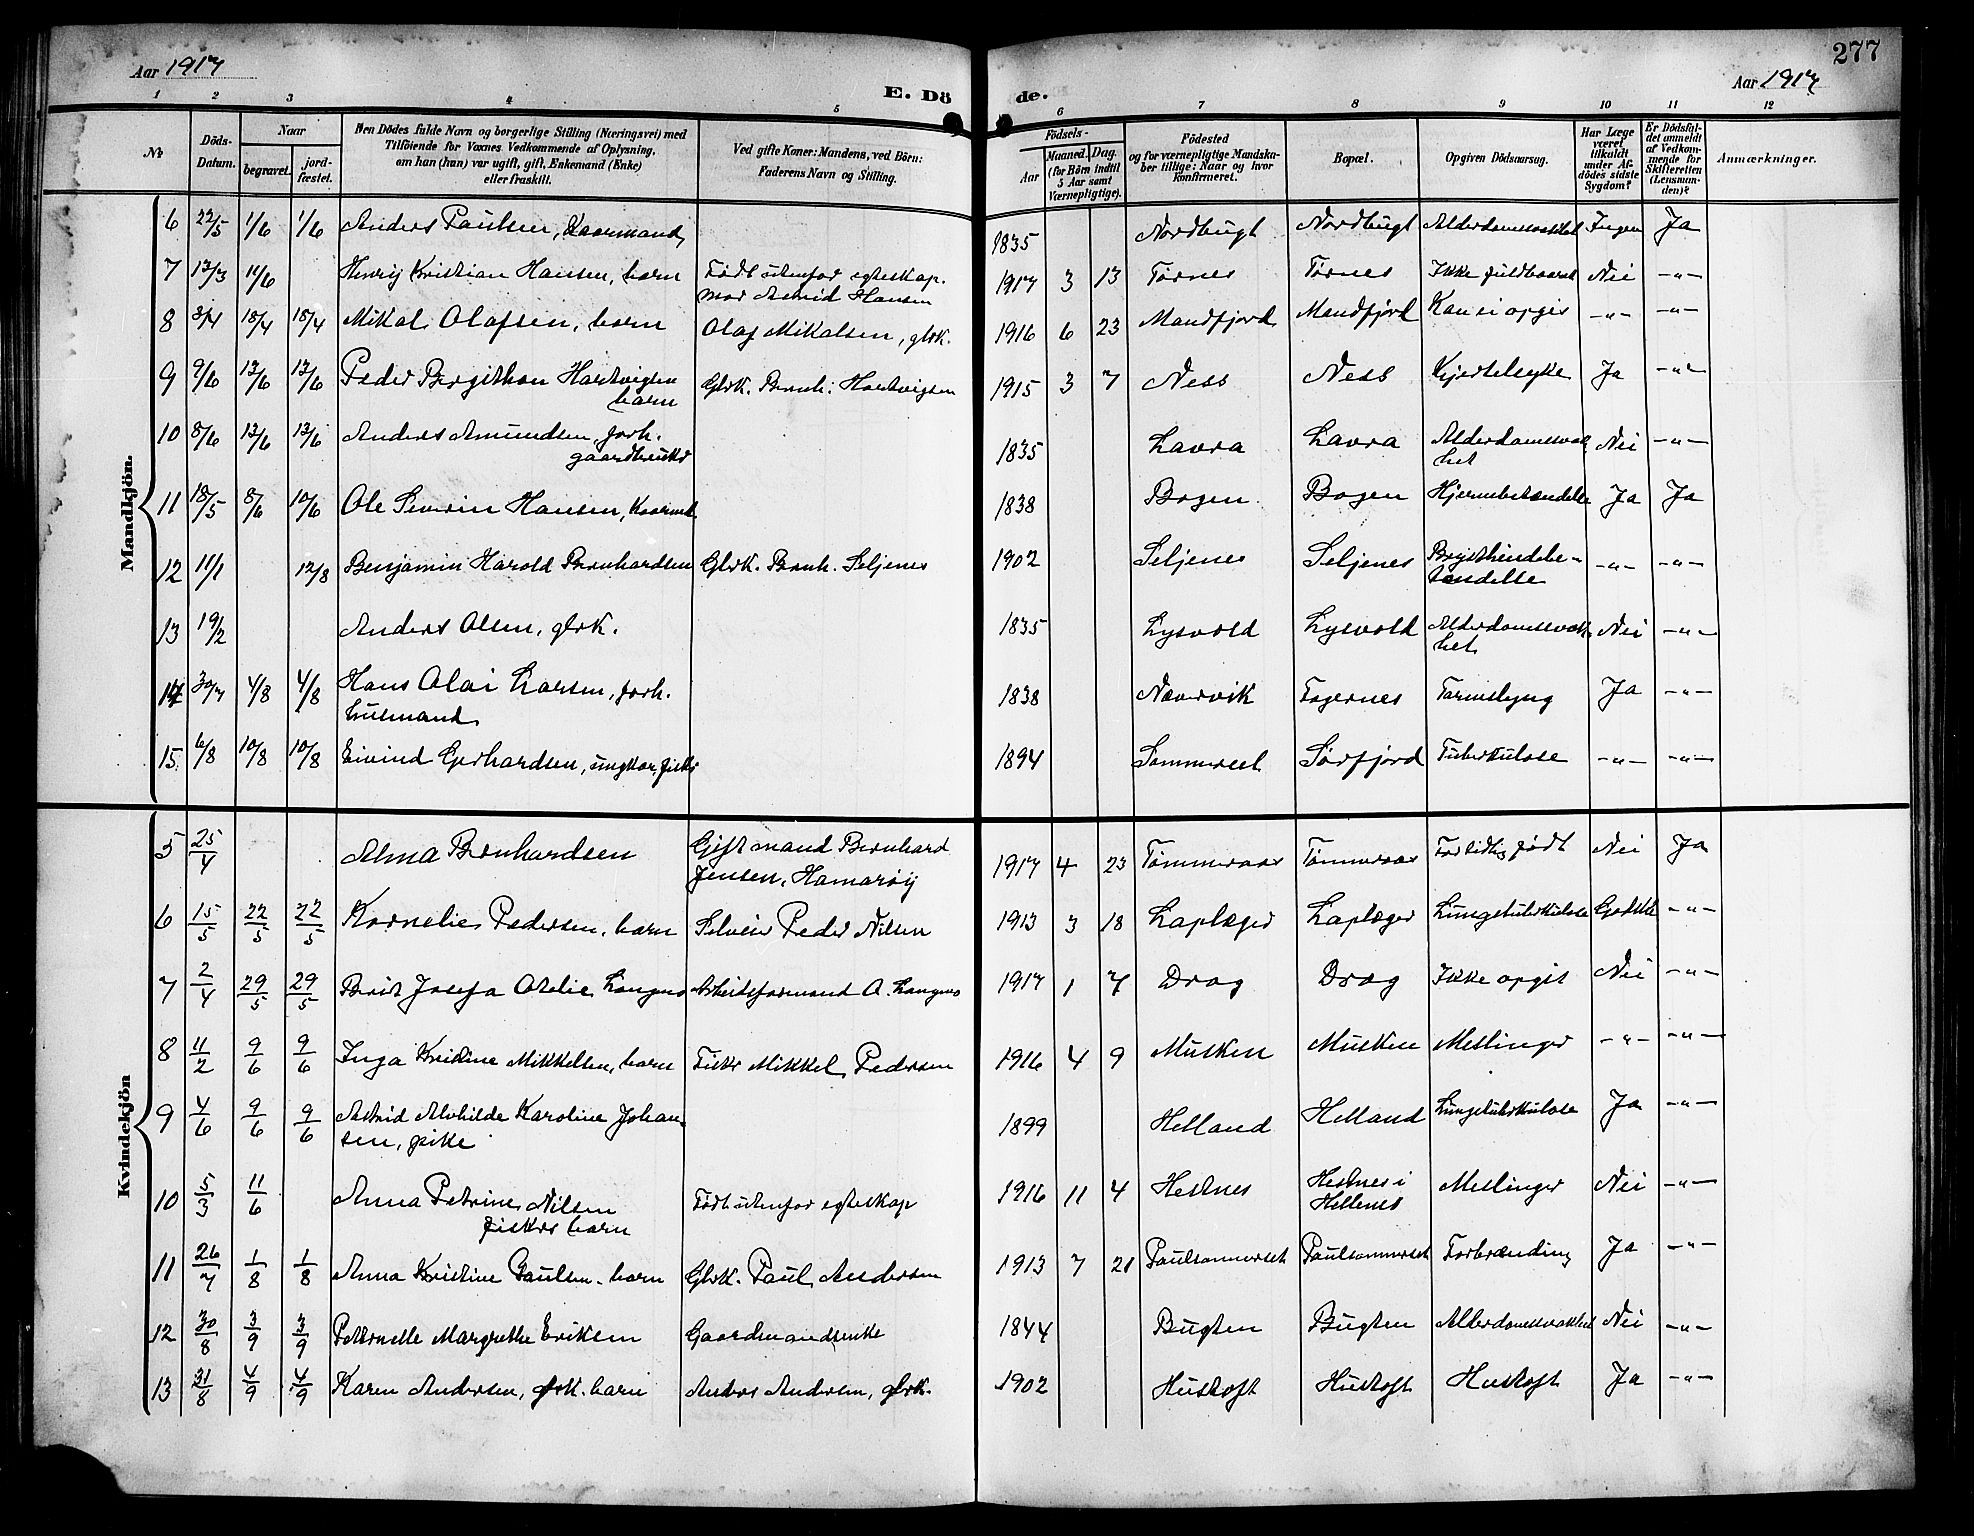 Aar 1917
E. Döde.
277
Aar 1917
1 2 3 4 5 6 7 8 9 10 11 12
No
Döds-Datum.
Naar
begravet.
jord-fæstet.
Den Dödes fulde Navn og borgerlige Stilling (Næringsvei) med
Tilföiende for Voxnes Vedkommende af Oplysning,
om han (hun) var ugift, gift, Enkemand (Enke)
eller fraskilt.
Ved gifte Koner: Mandens, ved Börn:
Faderens Navn og Stilling.
Födsels-
Aar
Maaned. Dag.
(for Börn indtil
5 Aar samt
Værnepligtige).
Födested
og for værnepligtige Mandska-
ber tillige: Naar og hvor
konfirmeret.
Bopæl.
Opgiven Dödsaarsag.
Har Læge
været
tilkaldt
under Af-
dödes sidste
Sygdom?
Er Dödsfal-
det anmeldt
af Vedkom-
mende for
Skifteretten
(Lensman-
den)?
Anmærkninger.
Mandkjön.
6 22/5 1/6 1/6 Anders Paulsen, Kaarmand 1835 Nordbugt Nordbugt Alderdomssvakhet Ingen Ja
7 13/3 11/6 Henrij Kristian Hansen, barn Födt utenfor egteskap. 1917 3 13 Tørnes Tørnes Ikke fuldbaaret Nei -"-
mor Astrid Hansen
8 3/4 18/4 18/4 Mikal Olafsen, barn Olaf Mikalsen, gbrk. 1916 6 23 Mandfjord Mandfjord Kan ei opgis -"- -"-
9 9/6 13/6 13/6 Peder Bergithon Hartvigsen Gbrk. Bernh. Hartvigsen 1915 3 7 Ness Ness Kjertelsyke Ja -"-
barn
10 8/6 13/6 13/6 Anders Amundsen, forh. 1835 Lavra Lavra Alderdomssvak Nei -"-
gaardbruker het
11 18/5 8/6 10/6 Ole Severin Hansen, Kaarmd. 1838 Bogen Bogen Hjernebetændelse Ja Ja
12 11/1 12/8 Benjamin Harold Bernhardsen Gbrk. Bernh. Seljenes 1902 Seljenes Seljenes Brysthindebe- -"- -"-
tændelse
13 19/2 Anders Olsen, gbrk. 1835 Lysvold Lysvold Alderdomssvak Nei -"-
het
14 30/7 4/8 4/8 Hans Olai Larsen, forh. 1838 Nævervik Fagernes Tarmslyng Ja -"-
husmand
15 6/8 10/8 10/8 Eivind Gerhardsen, ungkar, fisker 1894 Sommerset Sørfjord Tuberkulose -"- -"-
Kvindekjön
5 25/4 Alma Bernhardsen Gift mand Bernhard 1917 4 23 Tømmeraas Tømmeraas For tidlig født Nei Ja
Jensen, Hamarøy
6 15/5 22/5 22/5 Kornelie Pedersen, barn Selveier Peder Nilsen 1913 3 18 Laplæger Laplæger Lungetuberkulose -"-
7 2/4 29/5 29/5 Berit Josefa Otelie Langmo Arbeidsformand O. Langmo 1917 1 7 Drag Drag Ikke opgit Nei -"-
8 11/2 9/6 9/6 Inga Kristine Mikkelsen, barn Fisker Mikkel Pedersen 1916 4 9 Musken Musken Meslinger -"- -"-
9 4/6 9/6 9/6 Astrid Alvhilde Karoline Johan- 1899 Helland Helland Lungetuberkulose Ja -"-
sen, pike
10 5/3 11/6 Anna Petrine Nilsen Födt utenfor egteskap 1916 11 4 Hestnes Hestnes i Meslinger Nei -"-
fiskers barn Hellenes
11 26/7 1/8 1/8 Anna Kristine Paulsen. barn Gbrk. Paul Andersen 1913 7 21 Paulsommerset Paulsommerset Forbrænding Ja -"-
12 30/8 3/9 3/9 Petornelle Margrethe Eriksen Gaardmandsenke 1844 Bugten Bugten Alderdomssvakhet Nei -"-
13 31/8 4/9 4/9 Karen Andersen, gbrk. barn Anders Andersen, gbrk. 1902 Hustoft Hustoft Hustoft Ja -"-